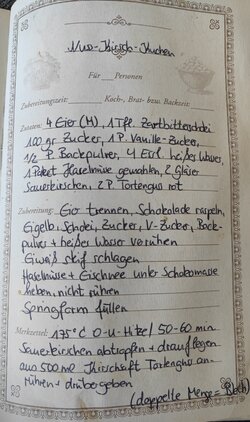 Nuss-Kirsch-Kuchen
Für Personen
Zubereitungszeit: Koch-, Brat- bzw. Backzeit:
Zutaten: 4 Eier (M), 1 Tfl. Zartbitterschoki
100 gr Zucker, 1 P. Vanille-Zucker,
1/2 P Backpulver, 4 Essl. heißes Wasser,
1 Paket Haselnüsse gemahlen, 2 Gläser
Sauerkirschen, 2 P. Tortenguss rot
Zubereitung: Eier trennen, Schokolade raspeln,
Eigelb, Schoki, Zucker, V-Zucker, Back-
pulver + heißes Wasser verrühren
Eiweiß steif schlagen
Haselnüsse + Eischnee unter Schokomasse
heben, nicht rühren
Springform füllen
Merkzettel: 175°C O-U-Hitze / 50-60 min.
Sauerkirschen abtropfen + drauflegen
aus 500 ml Kirschsaft Tortenguss an-
rühren + drübergeben
(doppelte Menge = Blech)